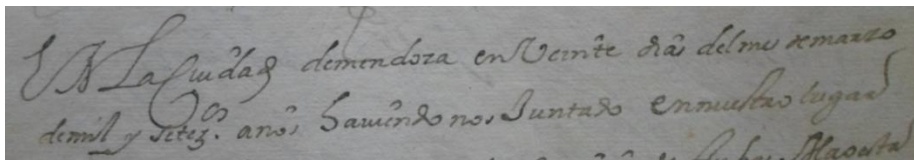 EN La Ciudad demendoza en Veinte dias del mes demarzo
demil y setezos. anos haviendonos Juntado ennuestro lugar